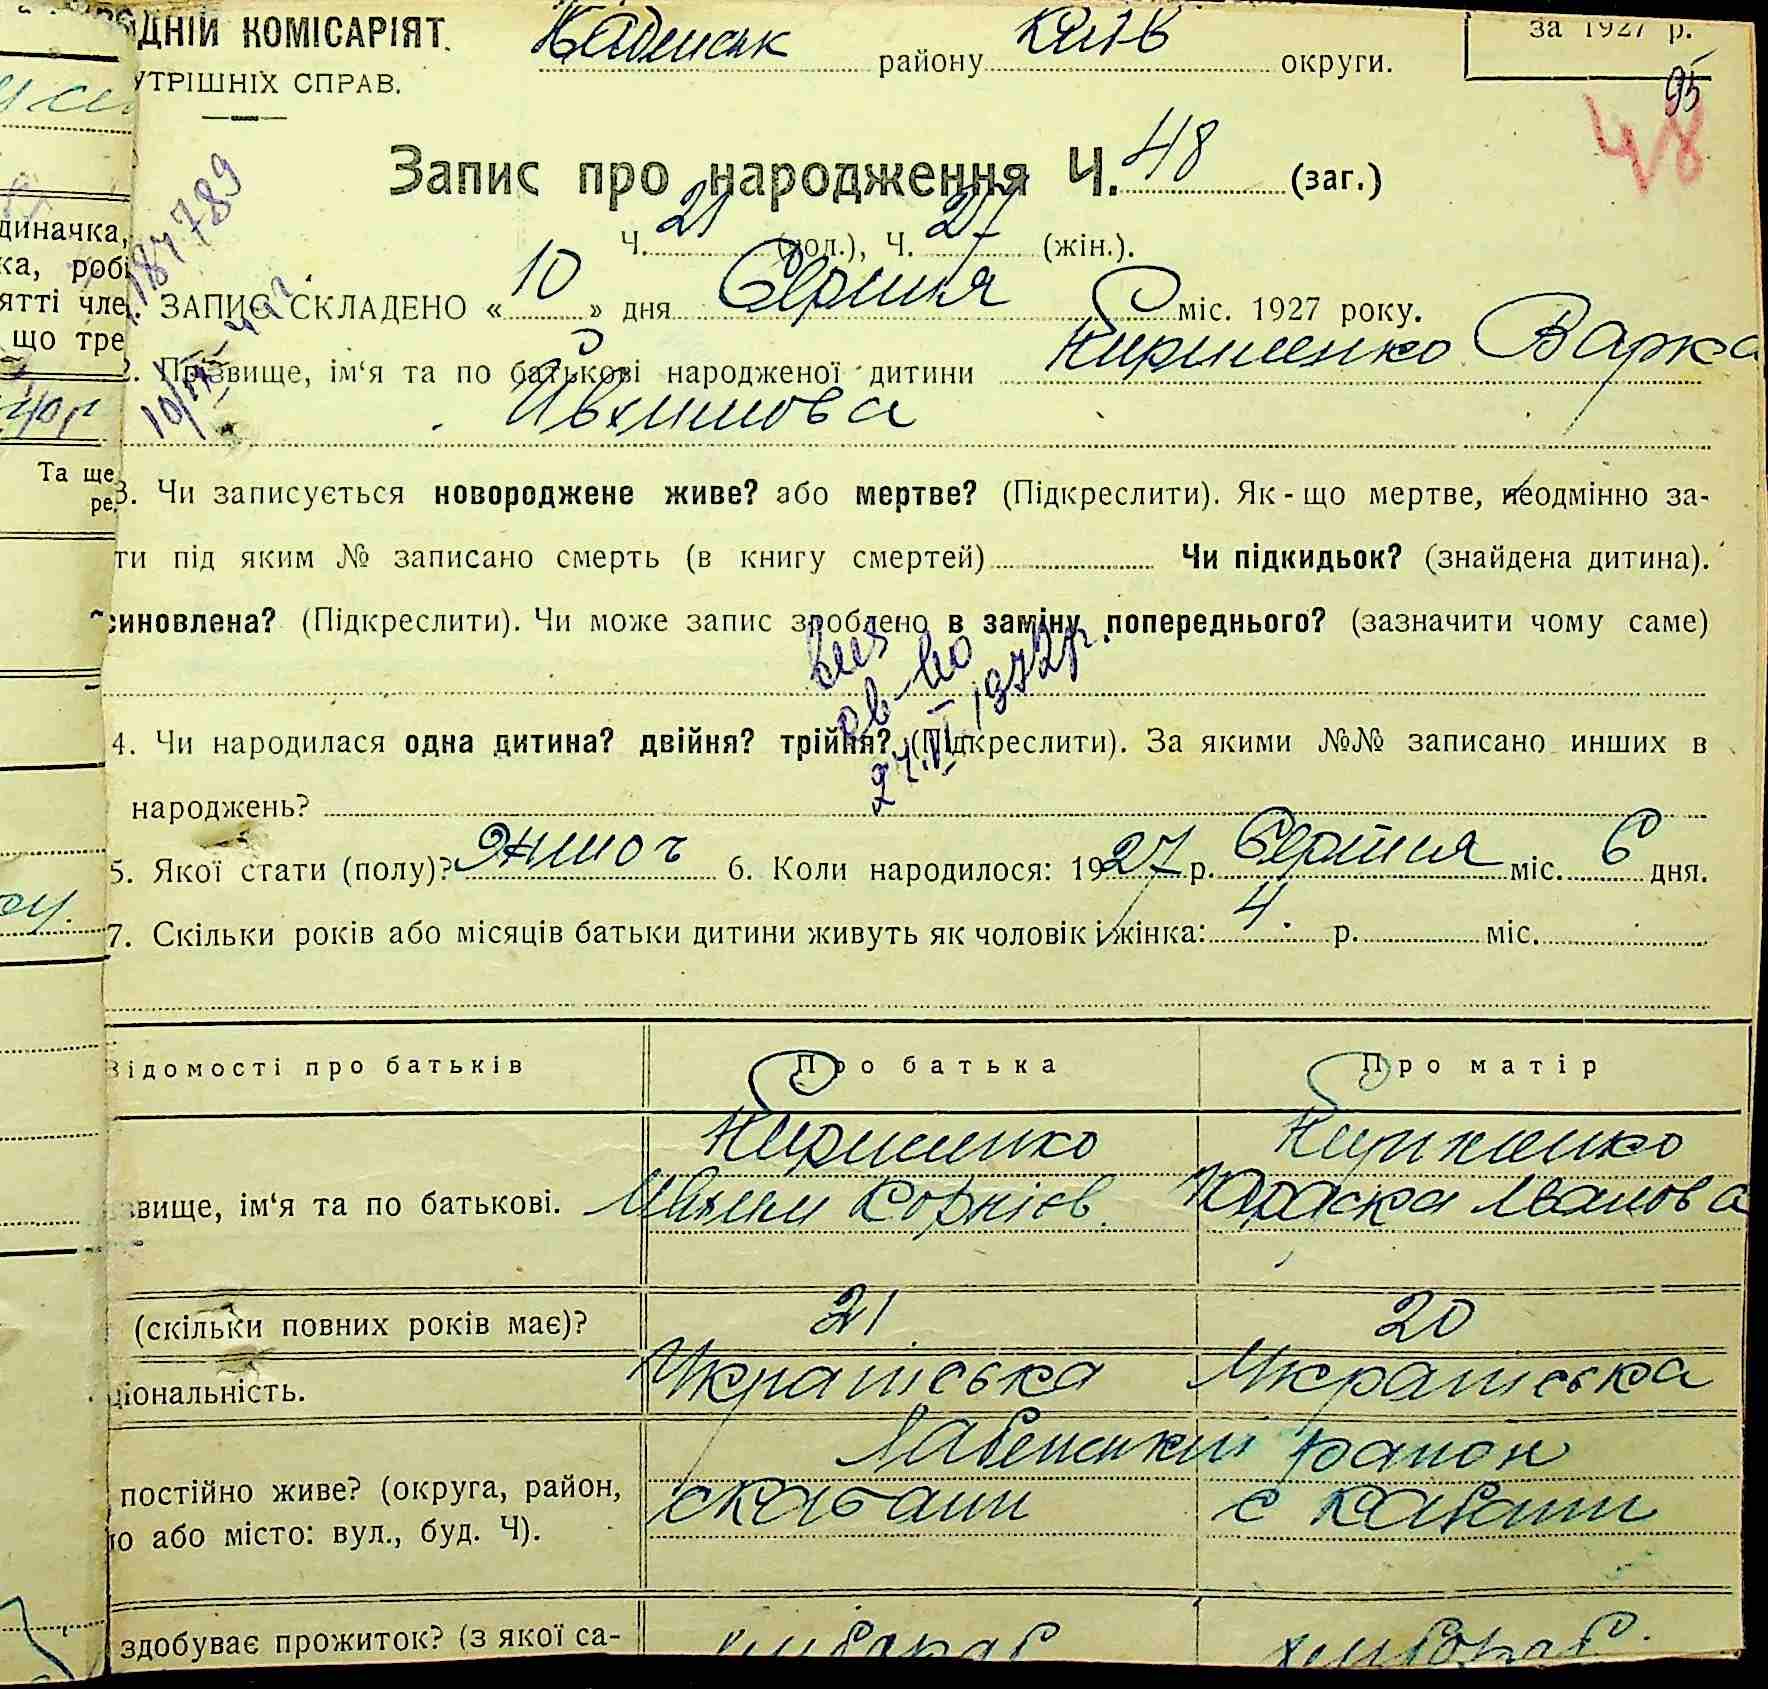 ДНІЙ КОМІСАРІЯТ.
УТРІШНІХ СПРАВ.
району округи.
за 1927 р.
95
48
Запис про народження Ч. 48 (заг.)
Ч. 21 (чол.), Ч. 27 (жін.).
ЗАПИС СКЛАДЕНО « 10 » дня Серпня міс. 1927 року.
2. Прізвище, ім'я та по батькові народженої дитини Кириленко Варка
Ивхимова
3. Чи записується новороджене живе? або мертве? (Підкреслити). Як-що мертве, неодмінно за-
ти під яким № записано смерть (в книгу смертей) Чи підкидьок? (знайдена дитина).
синовлена? (Підкреслити). Чи може запис зроблено в заміну попереднього? (зазначити чому саме)
24.VI 1972р.
4. Чи народилася одна дитина? двійня? трійня? (Підкреслити). За якими №№ записано инших в
народжень?
5. Якої стати (полу)? Жіноч 6. Коли народилося: 1927 р. Серпня міс. 6 дня.
7. Скільки років або місяців батьки дитини живуть як чоловік і жінка: 4 р. міс.
Відомості про батьків Про батька Про матір
Кириленко Кириленко
звище, ім'я та по батькові. Ивхим Корніев. Параска Иванова
(скільки повних років має)? 21 20
ціональність. Украінська Украінська
район
постійно живе? (округа, район,
або місто: вул., буд. Ч).
здобуває прожиток? (з якої са- хлібороб хлібороб.
диначка,
ка, робі
ятті чле
що тре
Та ще
ре